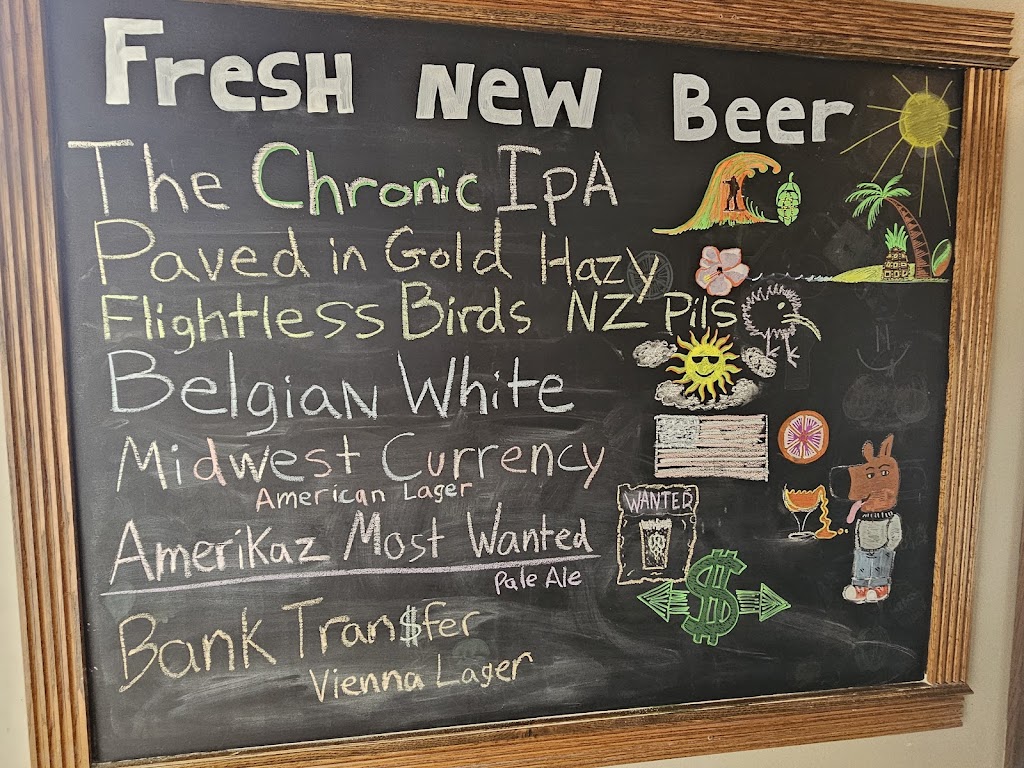 Fresh New Beer
The Chronic IPA
Paved in Gold Hazy
Flightless Birds NZ Pils
Belgian White
Midwest Currency
American Lager
WANTED
Amerikaz Most Wanted
Pale Ale
Bank Tran$fer
Vienna Lager